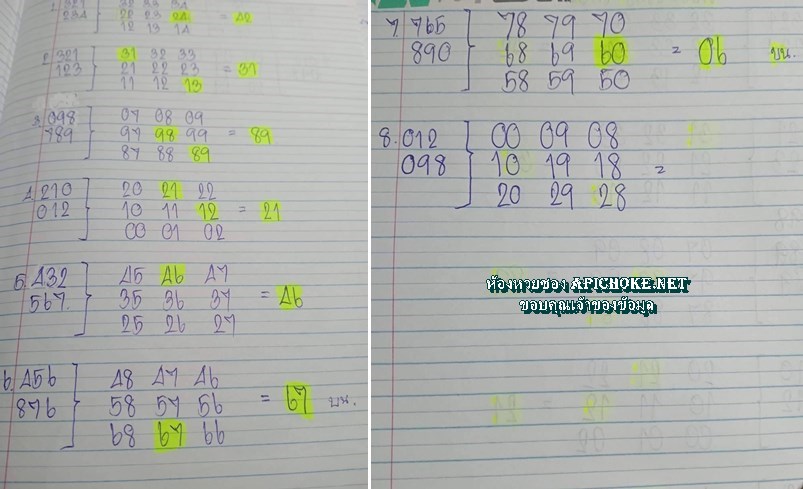 1. 321 32 33 34
234 22 23 24 = 42
12 13 14
2. 321 31 32 33
123 21 22 23 = 31
11 12 13
3. 098 07 08 09
789 97 98 99 = 89
87 88 89
4. 210 20 21 22
012 10 11 12 = 21
00 01 02
5. 432 45 46 47
567. 35 36 37 = 46
25 26 27
6. 456 48 47 46
876 58 57 56 = 67 บน.
68 67 66
7. 765 78 79 70
890 68 69 60 = 06 บน.
58 59 50
8. 012 00 09 08
098 10 19 18 =
20 29 28
ห้องหวยซอง APICHOKE.NET
ขอบคุณเจ้าของข้อมูล